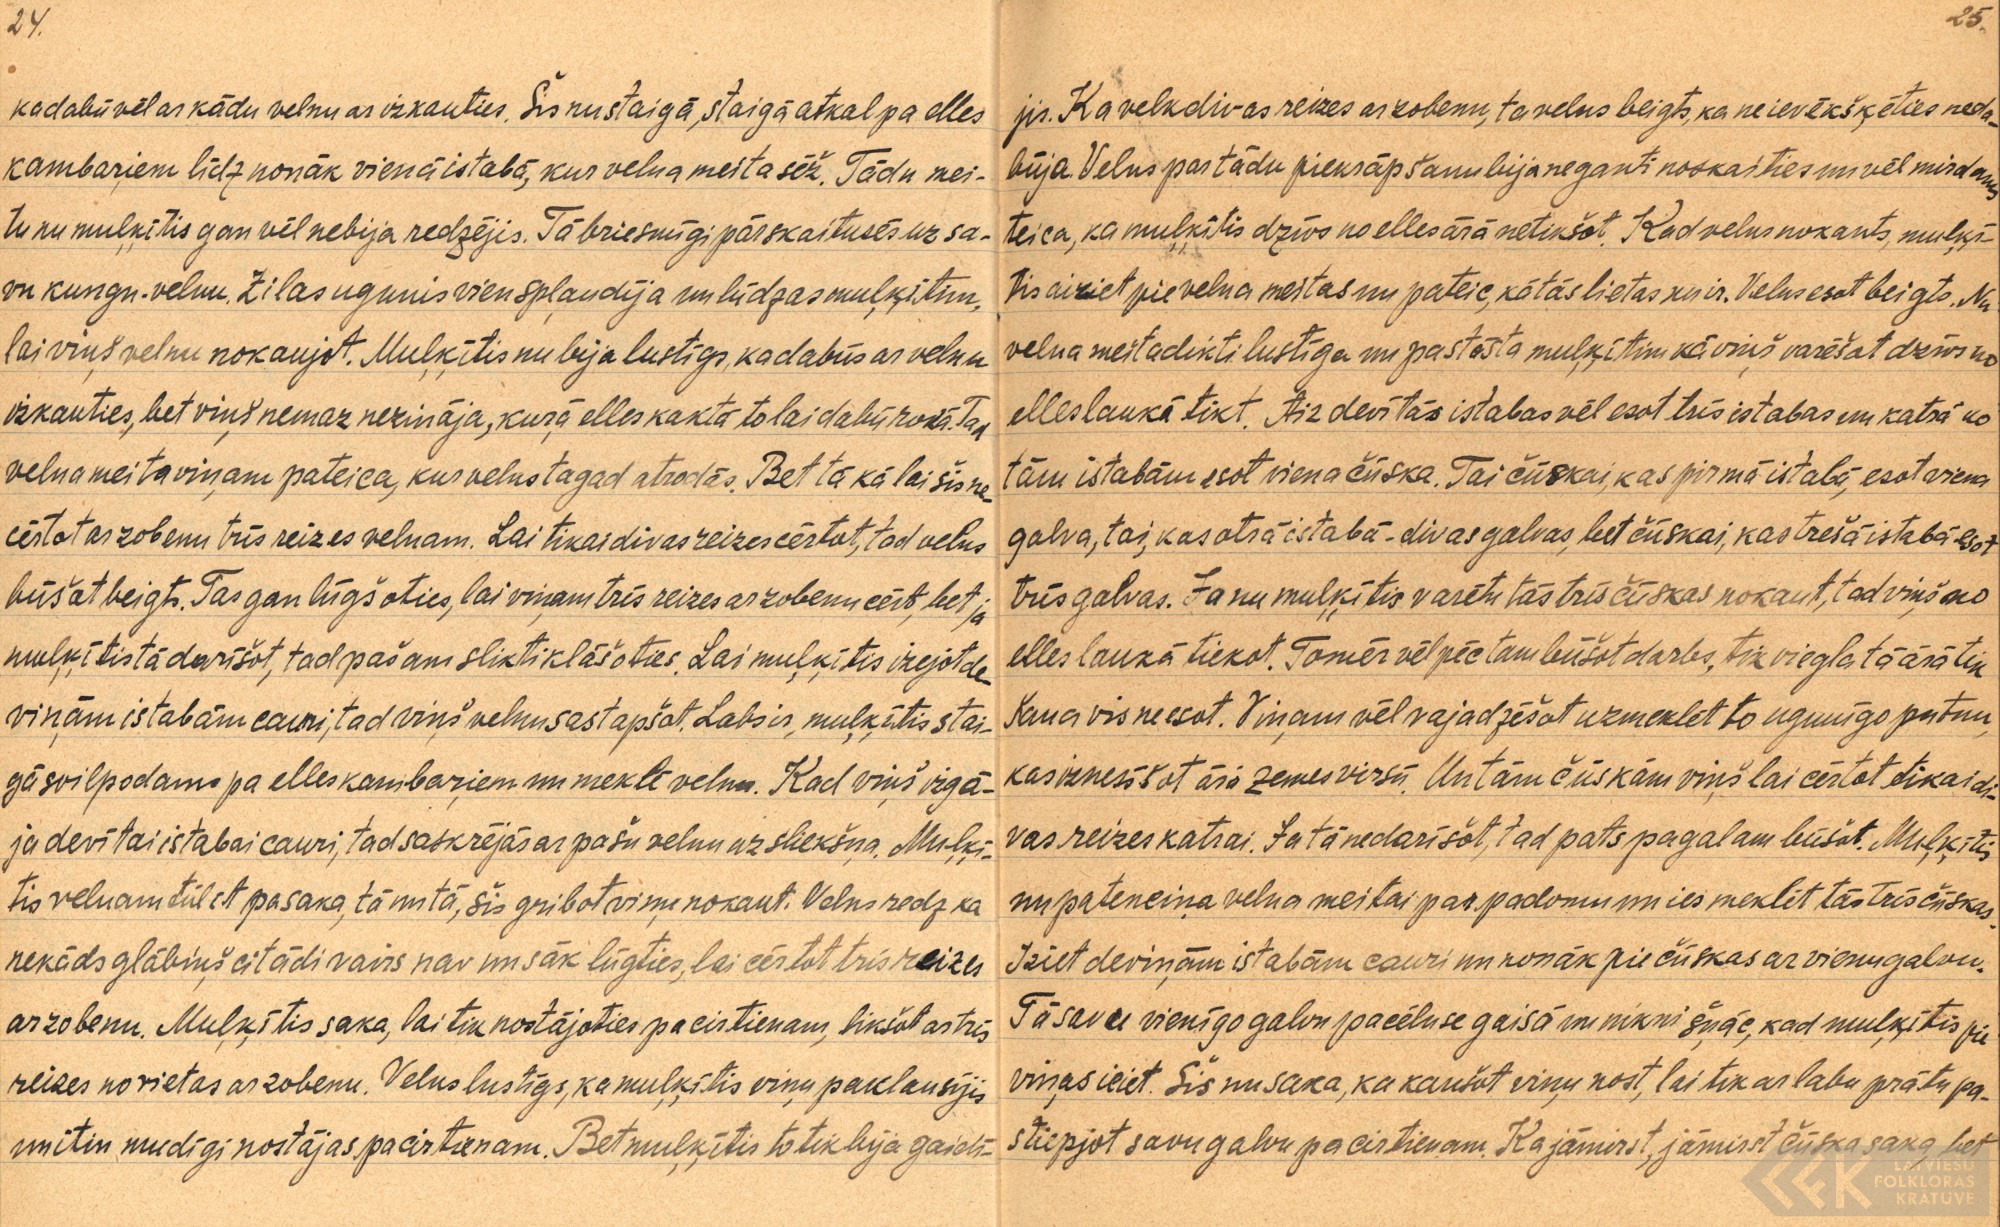 24.
kadabū vēl ar kādu velnu ar izkauties. Šis nu staigā, staigā atkal pa elles
kambaŗiem līdz nonāk vienā istabā, kur velna meita sēž. Tādu mei-
tu nu muļķītis gan vēl nebija redzējis. Tā briesmīgi pārskaitusēs uz sa-
vu kungu-velnu. Zilas ugunis vien spļaudīja un lūdzas muļķītim,
lai viņš velnu nokaujot. Muļķītis nu bija lustīgs, ka dabūs ar velnu
izkauties, bet viņš nemaz nezināja, kuŗā elles kaktā to lai dabū rokā. Tad
velna meita viņam pateica, kur velns tagad atrodās. Bet tā kā lai šis ne-
cērtot ar zobenu trīs reizes velnam. Lai tikai divas reizes cērtot, tad velns
būšot beigts. Tas gan lūgšoties, lai viņam trīs reizes ar zobenu cērt, bet ja
muļķītis tā darīšot, tad pašam slikti klāšoties. Lai muļķītis izejot de-
viņām istabām cauri, tad viņš velnu sastapšot. Labs ir, muļķītis stai-
gā svilpodams pa elles kambaŗiem un meklē velnu. Kad viņš izgā-
ja devītai istabai cauri, tad saskrējās ar pašu velnu uz sliekšņa. Muļķī-
tis velnam tūlīt pasaka, tā un tā, šis gribot viņu nokaut. Velns redz ka
nekāds glābiņš citādi vairs nav un sāk lūgties, lai cērtot trīs reizes
ar zobenu. Muļķītis saka, lai tik nostājoties pa cirtienam, likšot ar trīs
reizes no vietas ar zobenu. Velns lustīgs, ka muļķītis viņu paklausījis
un itin mudīgi nostājas pa cirtienam. Bet muļķītis to tik bija gaidī-
25.
jis. Ka velk divas reizes ar zobenu, ta velns beigts, ka ne ievēkšķēties neda-
būja. Velns par tādu piekrāpšanu bija neganti noskaities un vēl mirdams
teica, ka muļķītis dzīvs no elles ārā netikšot. Kad velns nokauts, muļķī-
tis aiziet pie velna meitas un pateic, kā tās lietas nu ir. Velns esot beigts. Nu
velna meita dikti lustīga un pastāsta muļķītim kā viņš varēšot dzīvs no
elles laukā tikt. Aiz devītās istabas vēl esot trīs istabas un katrā no
tām istabām esot viena čūska. Tai čūskai, kas pirmā istabā, esot viena
galva, tai, kas otrā istabā - divas galvas, bet čūskai, kas trešā istabā - esot
trīs galvas. Ja nu muļķītis varētu tās trīs čūskas nokaut, tad viņš no
elles laukā tiekot. Tomēr vēl pēc tam būšot darbs, tik viegla tā ārā tik
šana vis neesot. Viņam vēl vajadzēšot uzmeklēt to ugunīgo putnu,
kas iznesīšot ārā zemes virsū. Un tām čūskām viņš lai cērtot tikai di-
vas reizes katrai. Ja tā nedarīšot, tad pats pagalam būšot. Muļķītis
nu pateneiņa velna meitai par padomu un ies meklēt tās trīs čūskas.
Iziet deviņām istabām cauri un nonāk pie čūskas ar vienu galvu.
Tā savu vienīgo galvu pacēluse gaisā un nikni šņāc, kad muļķītis pie
viņas ieiet. Šis nu saka, ka kaušot viņu nost, lai tik ar labu prātu pa-
stiepjot savu galvu pa cirtienam. Ka jāmirst, jāmirst čūska saka, bet
LATVIEŠU
FOLKLORAS
KRĀTUVE